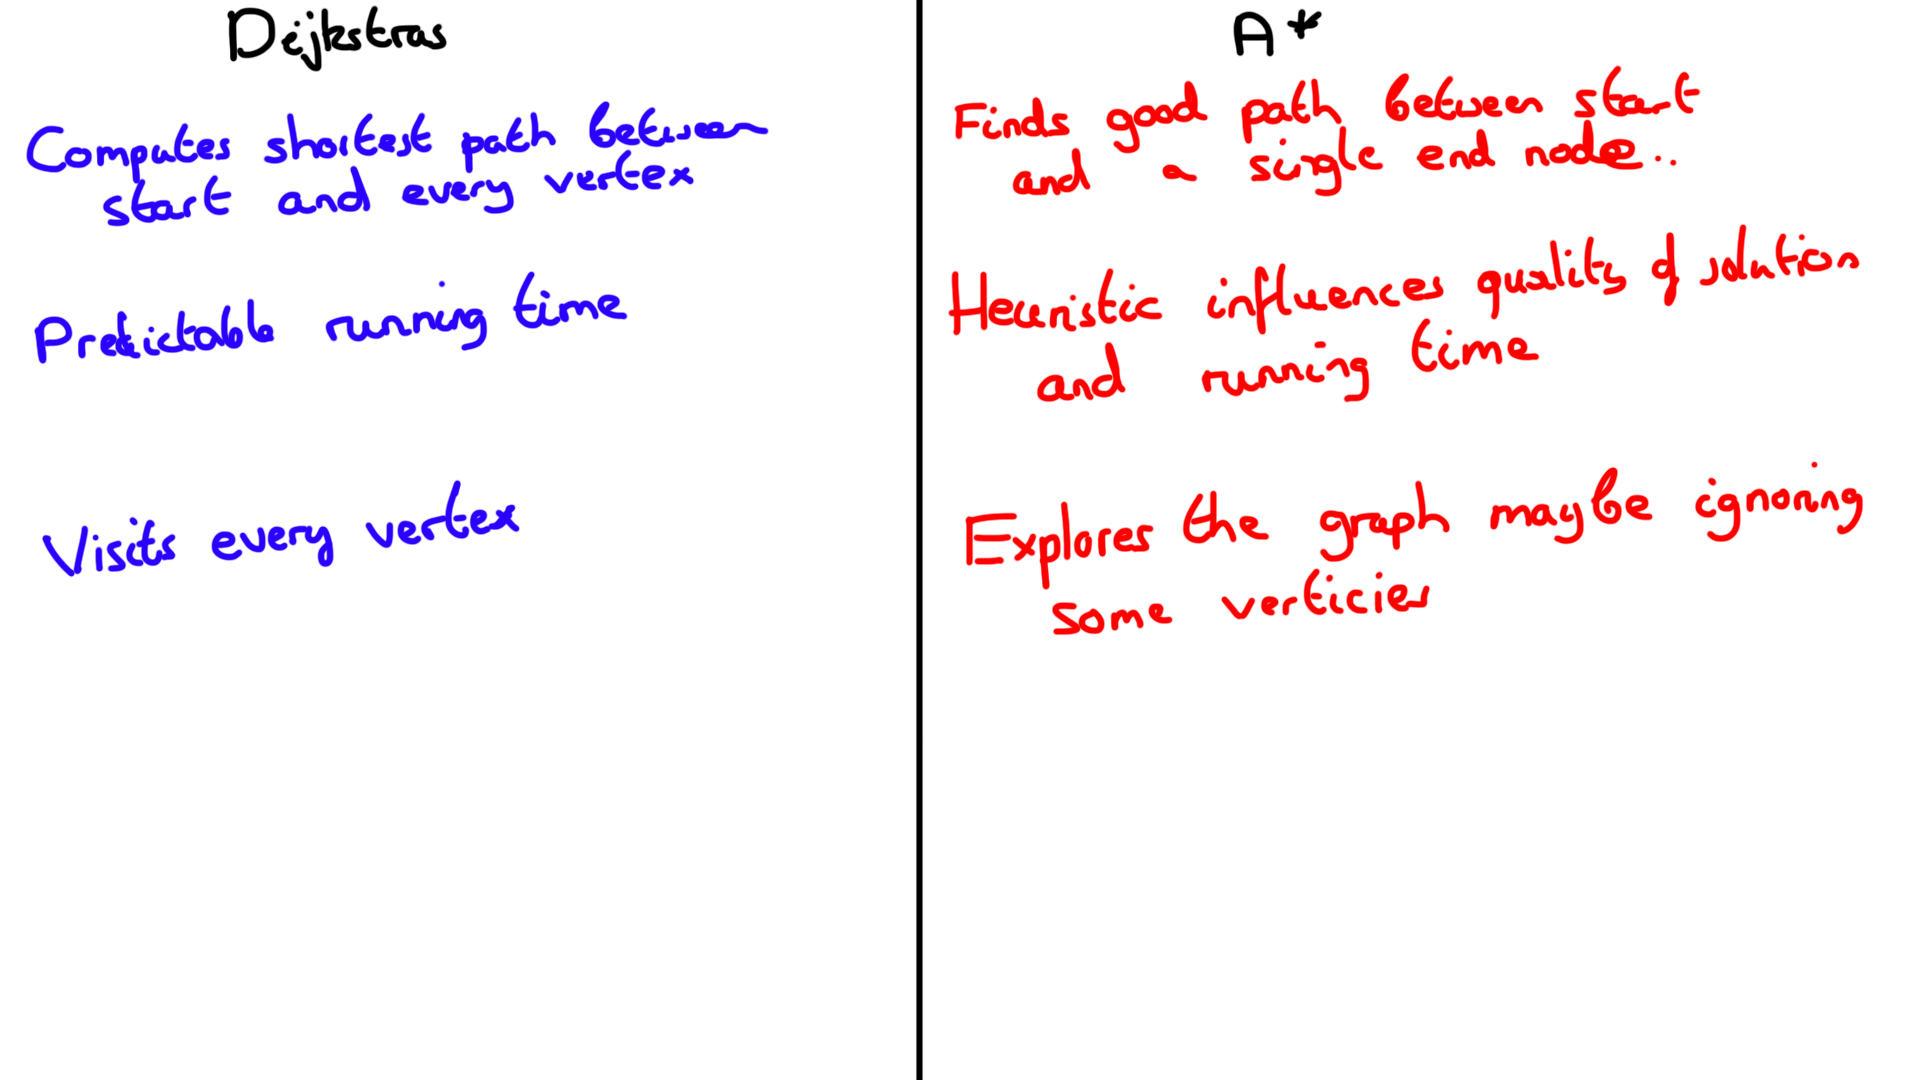 Dijkstras
Computes shortest path between
start and every vertex
Predictable running time
Visits every vertex
A*
Finds good path between start
and a single end node..
Heuristic influences quality of solution
and running time
Explores the graph maybe ignoring
some verticies